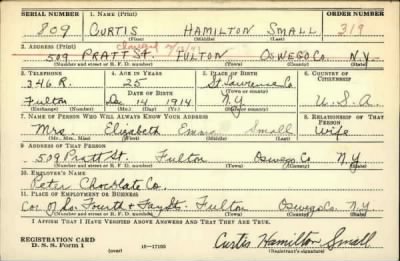 SERIAL NUMBER 1. NAME (Print) ORDER NUMBER
809 CURTIS HAMILTON SMALL 319
(First) (Middle) (Last)
2. ADDRESS (Print)
509 PRATT St. FULTON OSWEGO Co. N.Y.
(Number and street or R. F. D. number) (Town) (County) (State)
3. TELEPHONE 4. AGE IN YEARS 5. PLACE OF BIRTH 6. COUNTRY OF CITIZENSHIP
346 R. 25 St Lawrence Co
(Town or county)
DATE OF BIRTH
Fulton Dec. 14 1914 N.Y U.S.A.
(Exchange) (Number) (Mo.) (Day) (Yr.) (State or country)
7. NAME OF PERSON WHO WILL ALWAYS KNOW YOUR ADDRESS 8. RELATIONSHIP OF THAT PERSON
Mrs. Elizabeth Small Wife
(Mr., Mrs., Miss) (First) (Middle) (Last)
9. ADDRESS OF THAT PERSON
509 Pratt St. Fulton Oswego Co N.Y
(Number and street or R. F. D. number) (Town) (County) (State)
10. EMPLOYER'S NAME
Peter Chocolate Co.
11. PLACE OF EMPLOYMENT OR BUSINESS
Cor. of So. Fourth & Fay Sts. Fulton Oswego Co N.Y
(Number and street or R. F. D. number) (Town) (County) (State)
I AFFIRM THAT I HAVE VERIFIED ABOVE ANSWERS AND THAT THEY ARE TRUE.
REGISTRATION CARD
D. S. S. Form 1 (over) 16—17105 Curtis Hamilton Small
(Registrant's signature)